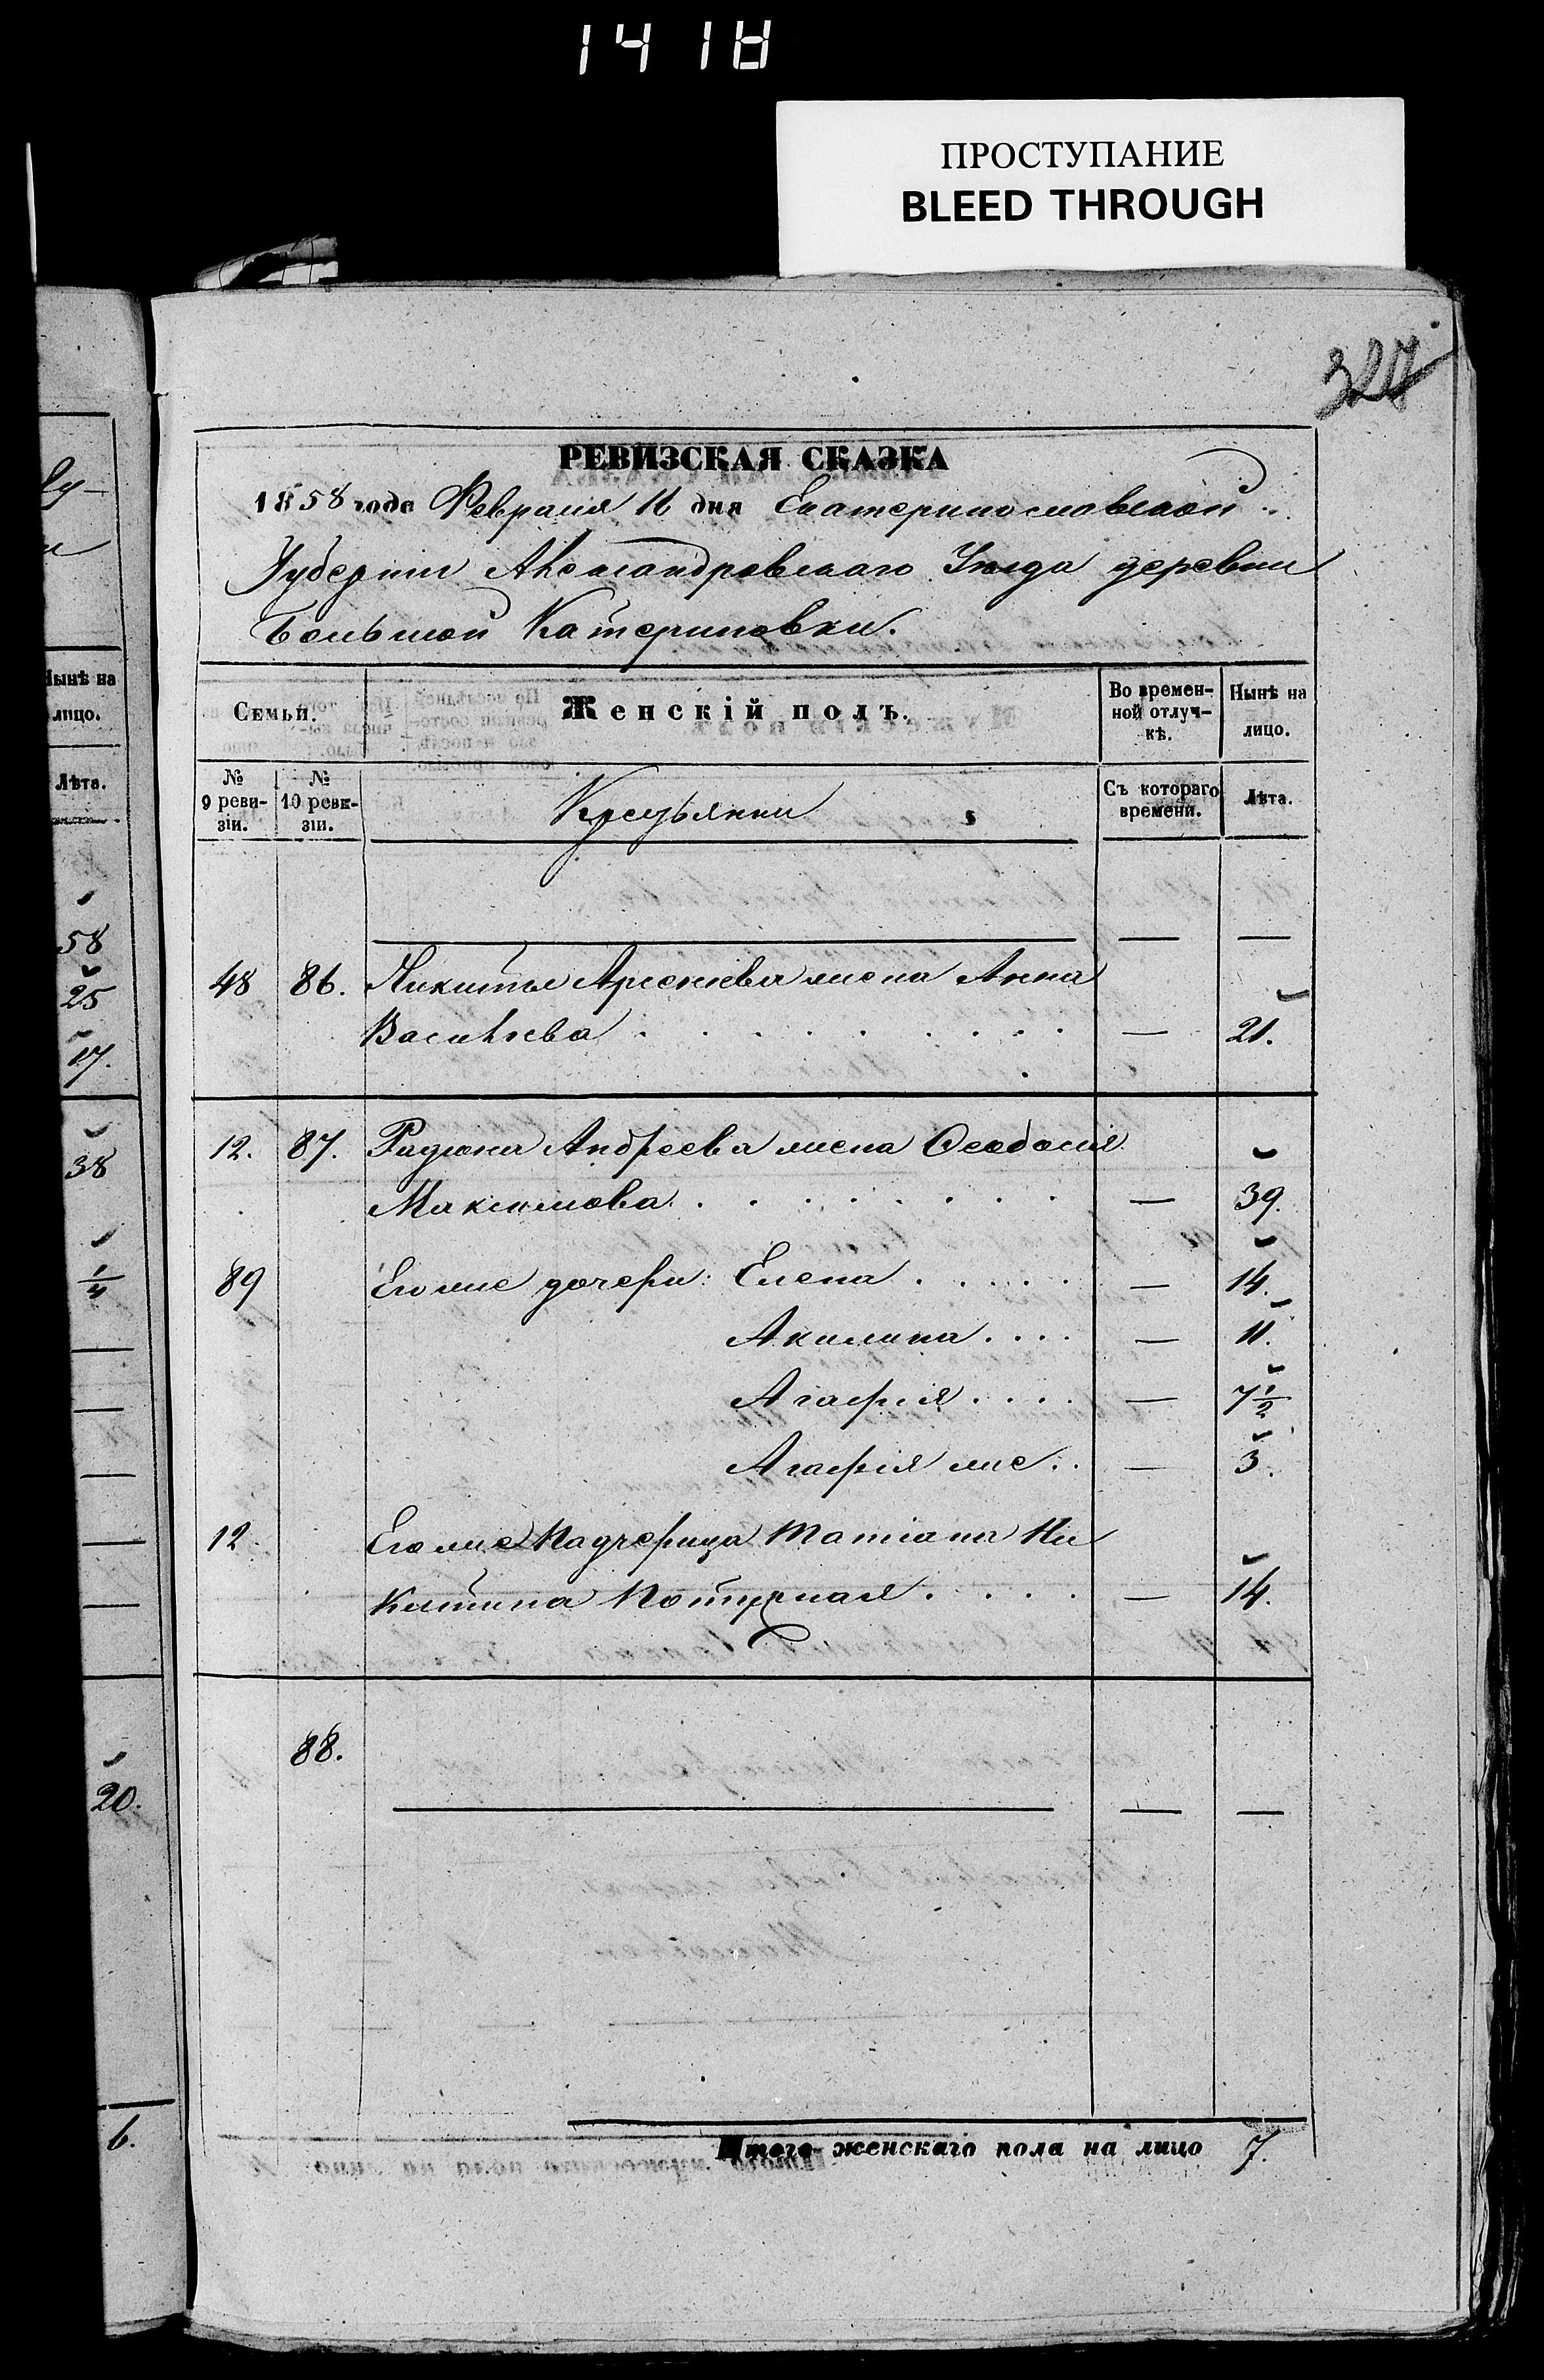 1418
ПРОСТУПАНИЕ
BLEED THROUGH
327
РЕВИЗСКАЯ СКАЗКА
1858 года Февраля 16 дня Екатеринославской
Губерніи Александровскаго Уѣзда деревни
Большой Катериновки.
Семьи.
Женскій полъ.
Во времен-
ной отлуч-
кѣ.
Нынѣ на
лицо.
№
9 реви-
зіи.
№
10 реви-
зіи.
Крестьянки
Съ котораго
времени.
Лѣта.
— —
48 86. Никиты Арсеньева жена Анна
Васильева . . . . . . . . — 21.
12. 87. Радиона Андреева жена Ѳеодосія
Максимова . . . . . . . — 39.
89 Его же дочери: Елена . . . . . — 14.
Акилина . . . . — 11.
Агафія . . . . — 7 1/2
Агафія же . . — 3.
12 Его же Падчерица Татіана Ни
китина . . . . — 14.
88.
— —
Итого женскаго пола на лицо 7.
Нынѣ на
лицо.
Лѣта.
58
25
17.
38
1/4
20.
6.